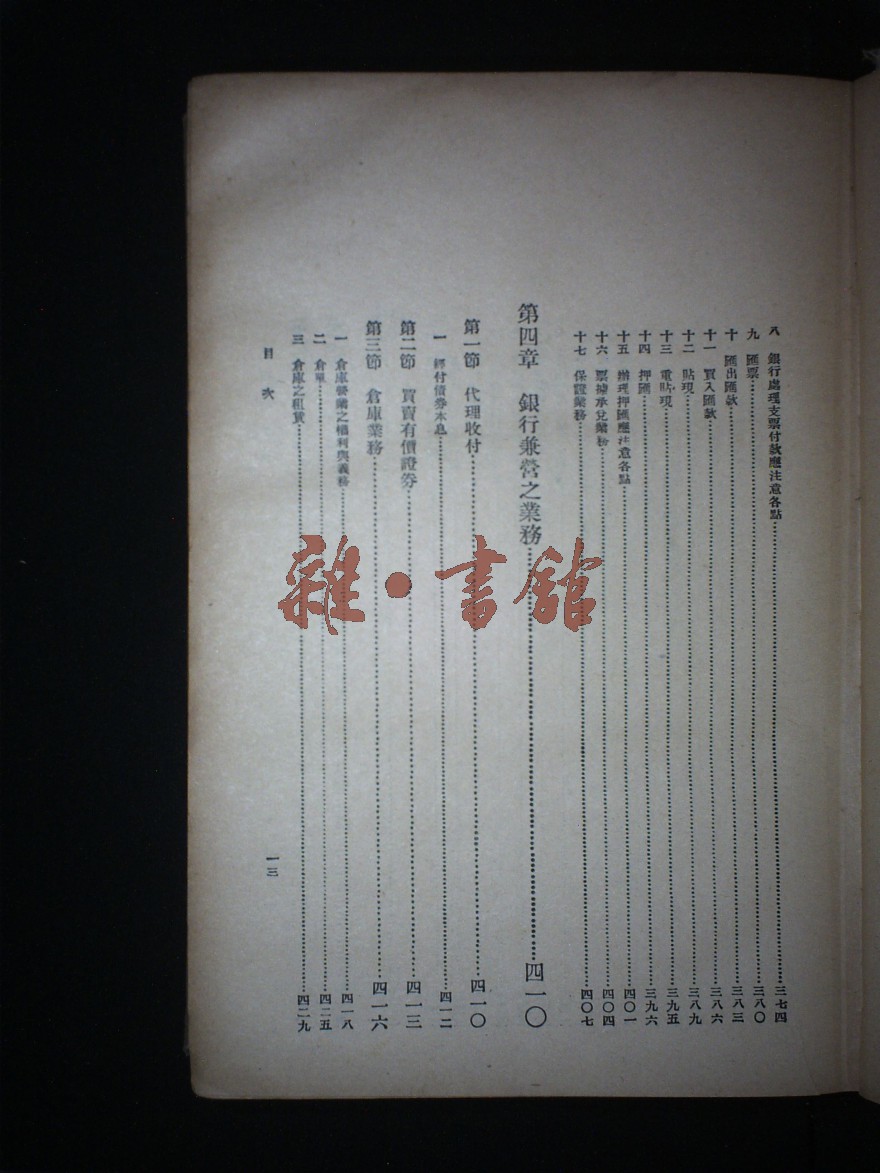 八 銀行處理支票付款應注意各點……三七四
九 匯票……三八〇
十 匯出匯款……三八三
十一 買入匯款……三八六
十二 貼現……三八九
十三 重貼現……三九五
十四 押匯……三九六
十五 辦理押匯應注意各點……四〇一
十六 票據承兌業務……四〇四
十七 保證業務……四〇七
第四章 銀行兼營之業務……四一〇
第一節 代理收付……四一〇
一 經付債券本息……四一二
第二節 買賣有價證券……四一三
第三節 倉庫業務……四一六
一 倉庫營業之權利與義務……四一八
二 倉單……四二五
三 倉庫之租賃……四二九
目次
一三
雜·書館